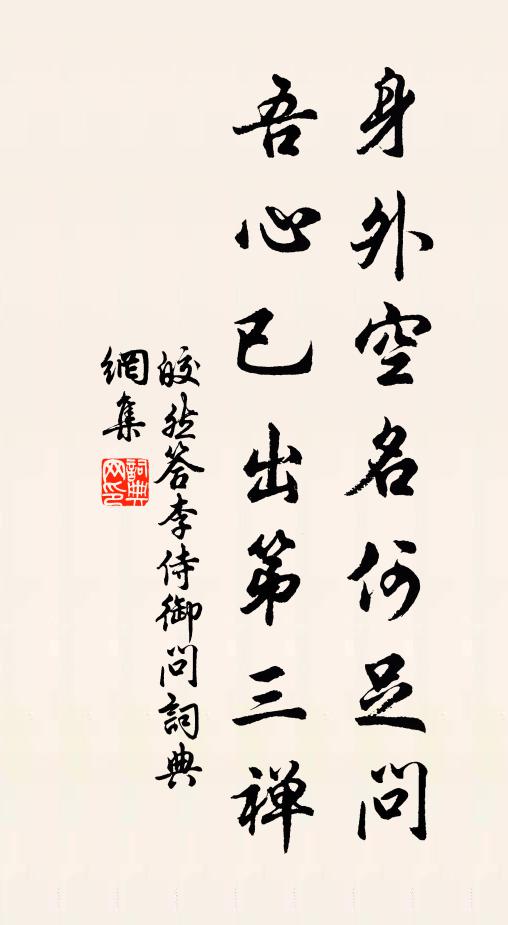 身外空名何足問
吾心已出第三禅
皎然答李侍御問詞典
網集
詞典网印